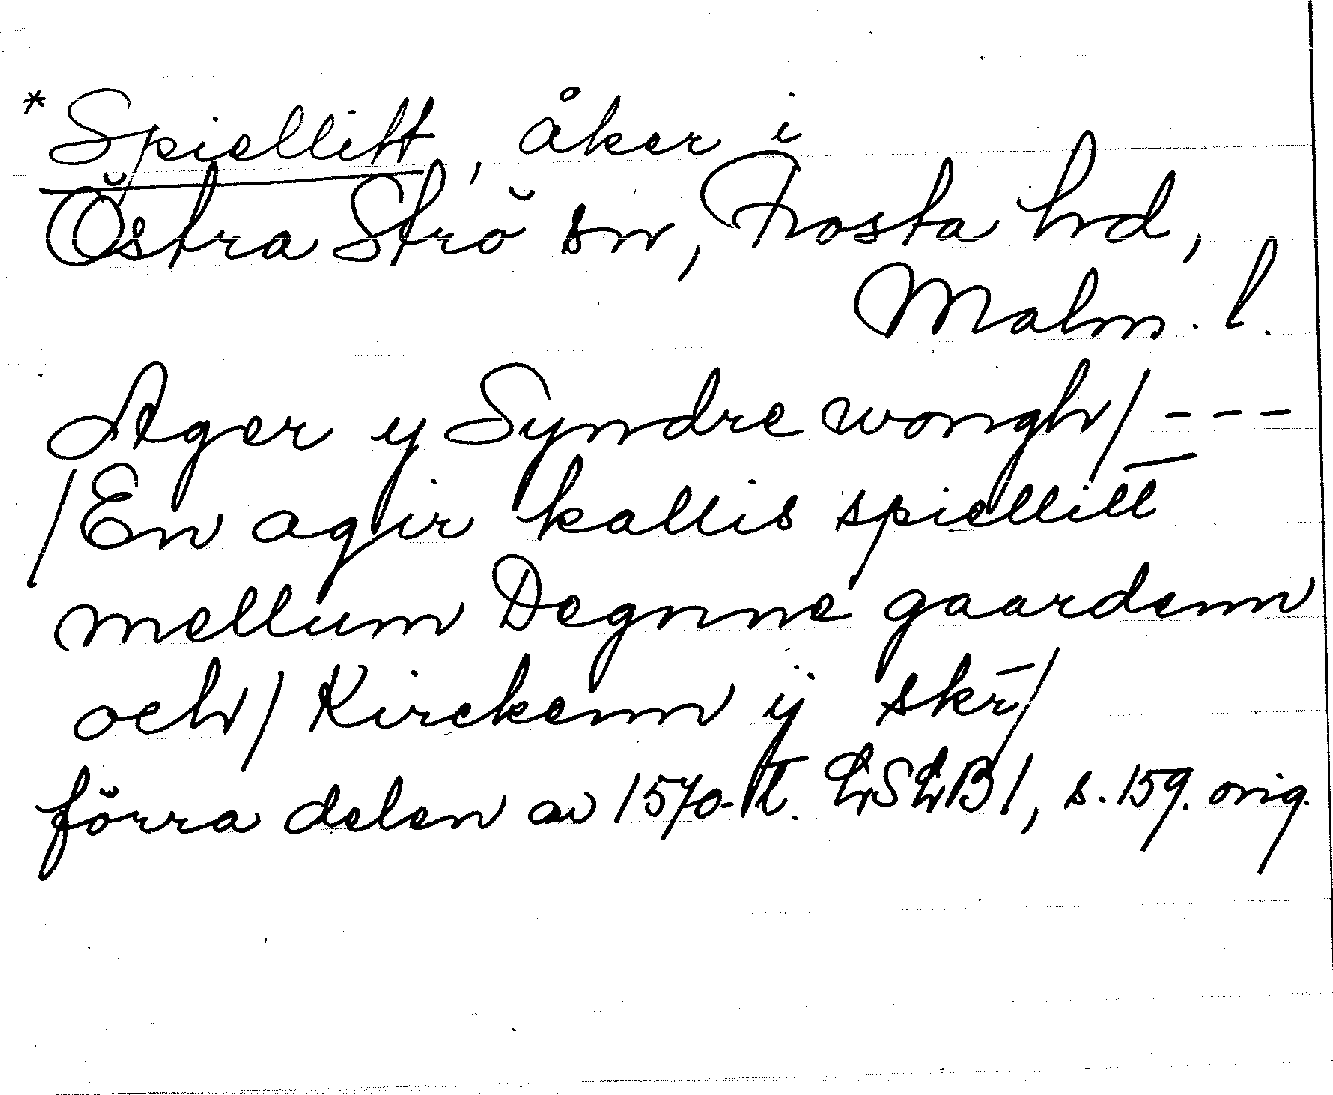 *Spiellitt, åker i
Östra Strö sn, Frosta hd,
Malm. l.
Ager y Syndre wongh/ - - -
/En agir kallis spiellitt̄
mellum Degnne gaardenn
och/ Kirckenn ij skr̄/
förra delen av 1570-t. LSLB1, s. 159. orig.